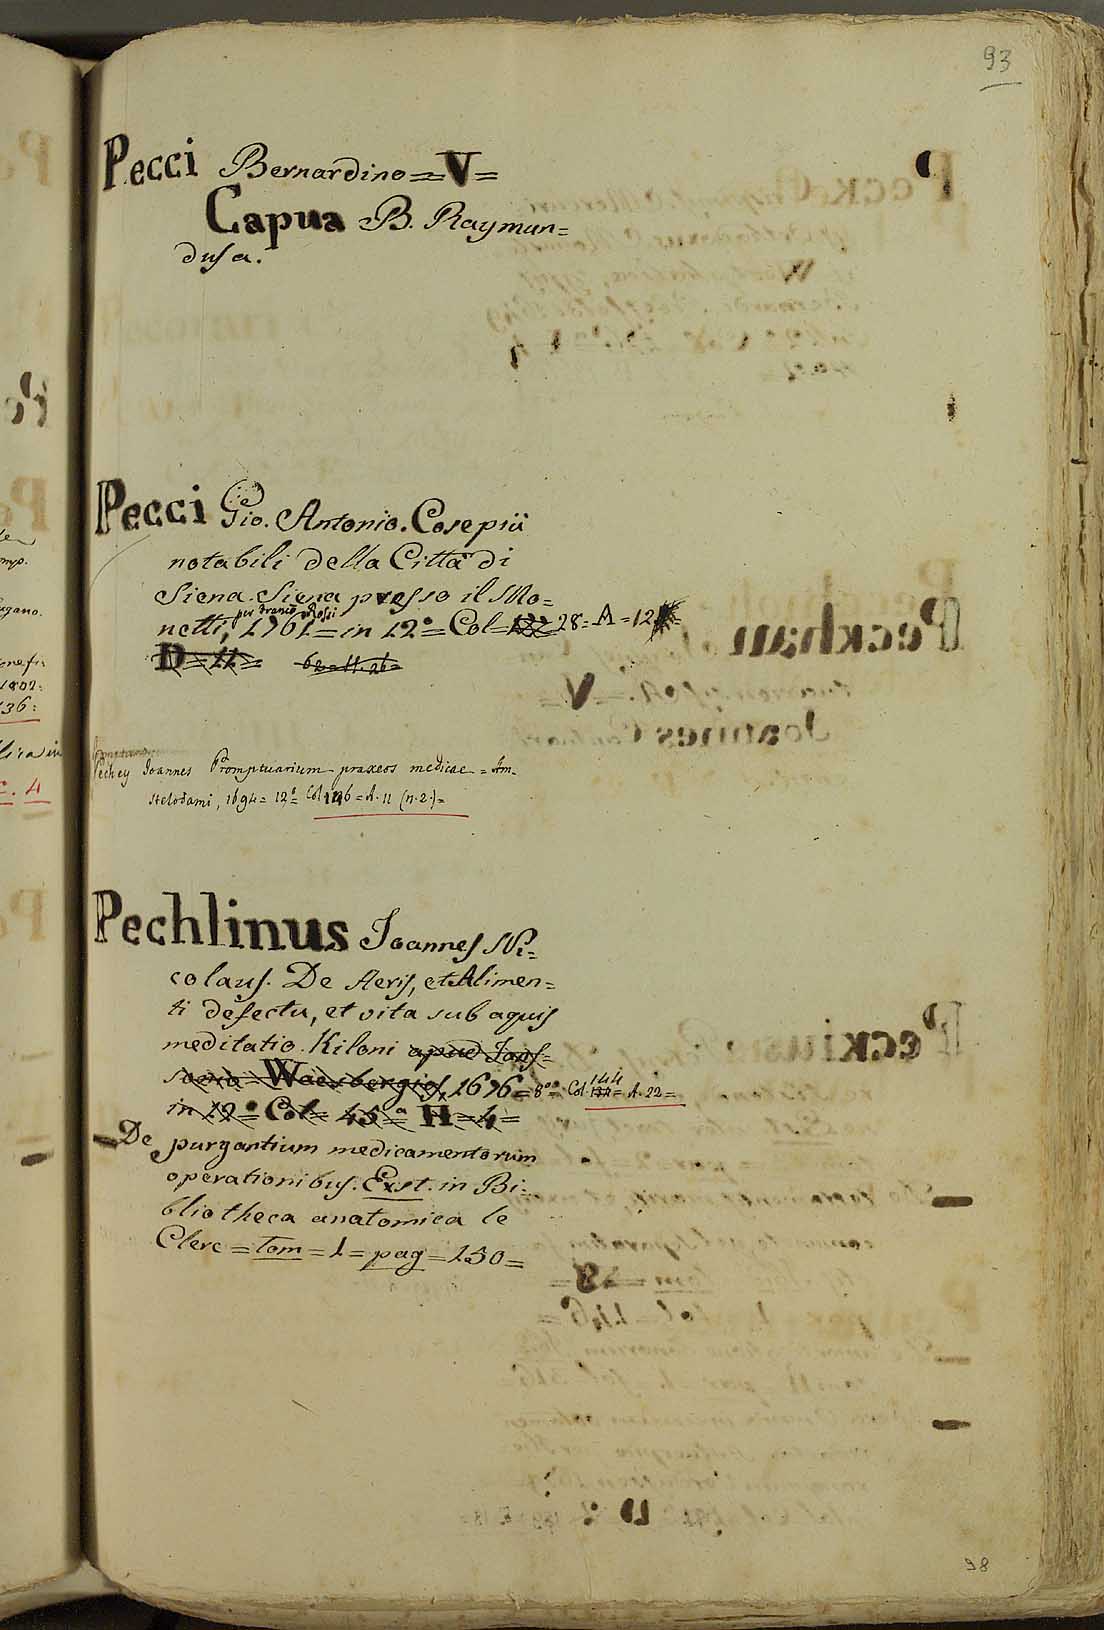 93
Pecci Bernardino = V =
Capua B. Raymun=
dus a.
Pecci Gio. Antonio. Cose più
notabili della Città di
Siena. Siena presso il Mo=
per Franco Rossi
netti, 1761 = in 12° = Col = 28 = A = 12
D = 11 = 62 = 11. 26 =
Pechey Joannes Promptuarium praxeos medicae = Am-
stelodami, 1694 = 12° = Col 146 = A. 11 (n. 2.) =
Pechlinus Joannes Ni=
colaus. De Aeris, et Alimen=
ti defectu, et vita sub aquis
meditatio. Kiloni apud Jans=
sonio = Waesbergios, 1676 = 8° = Col. 144 = A. 22 =
in 12° = Col = 45ª = H = 4 =
De purgantium medicamentorum
operationibus. Exst. in Bi=
bliotheca anatomica le
Clerc = tom = 1 = pag = 150 =
98